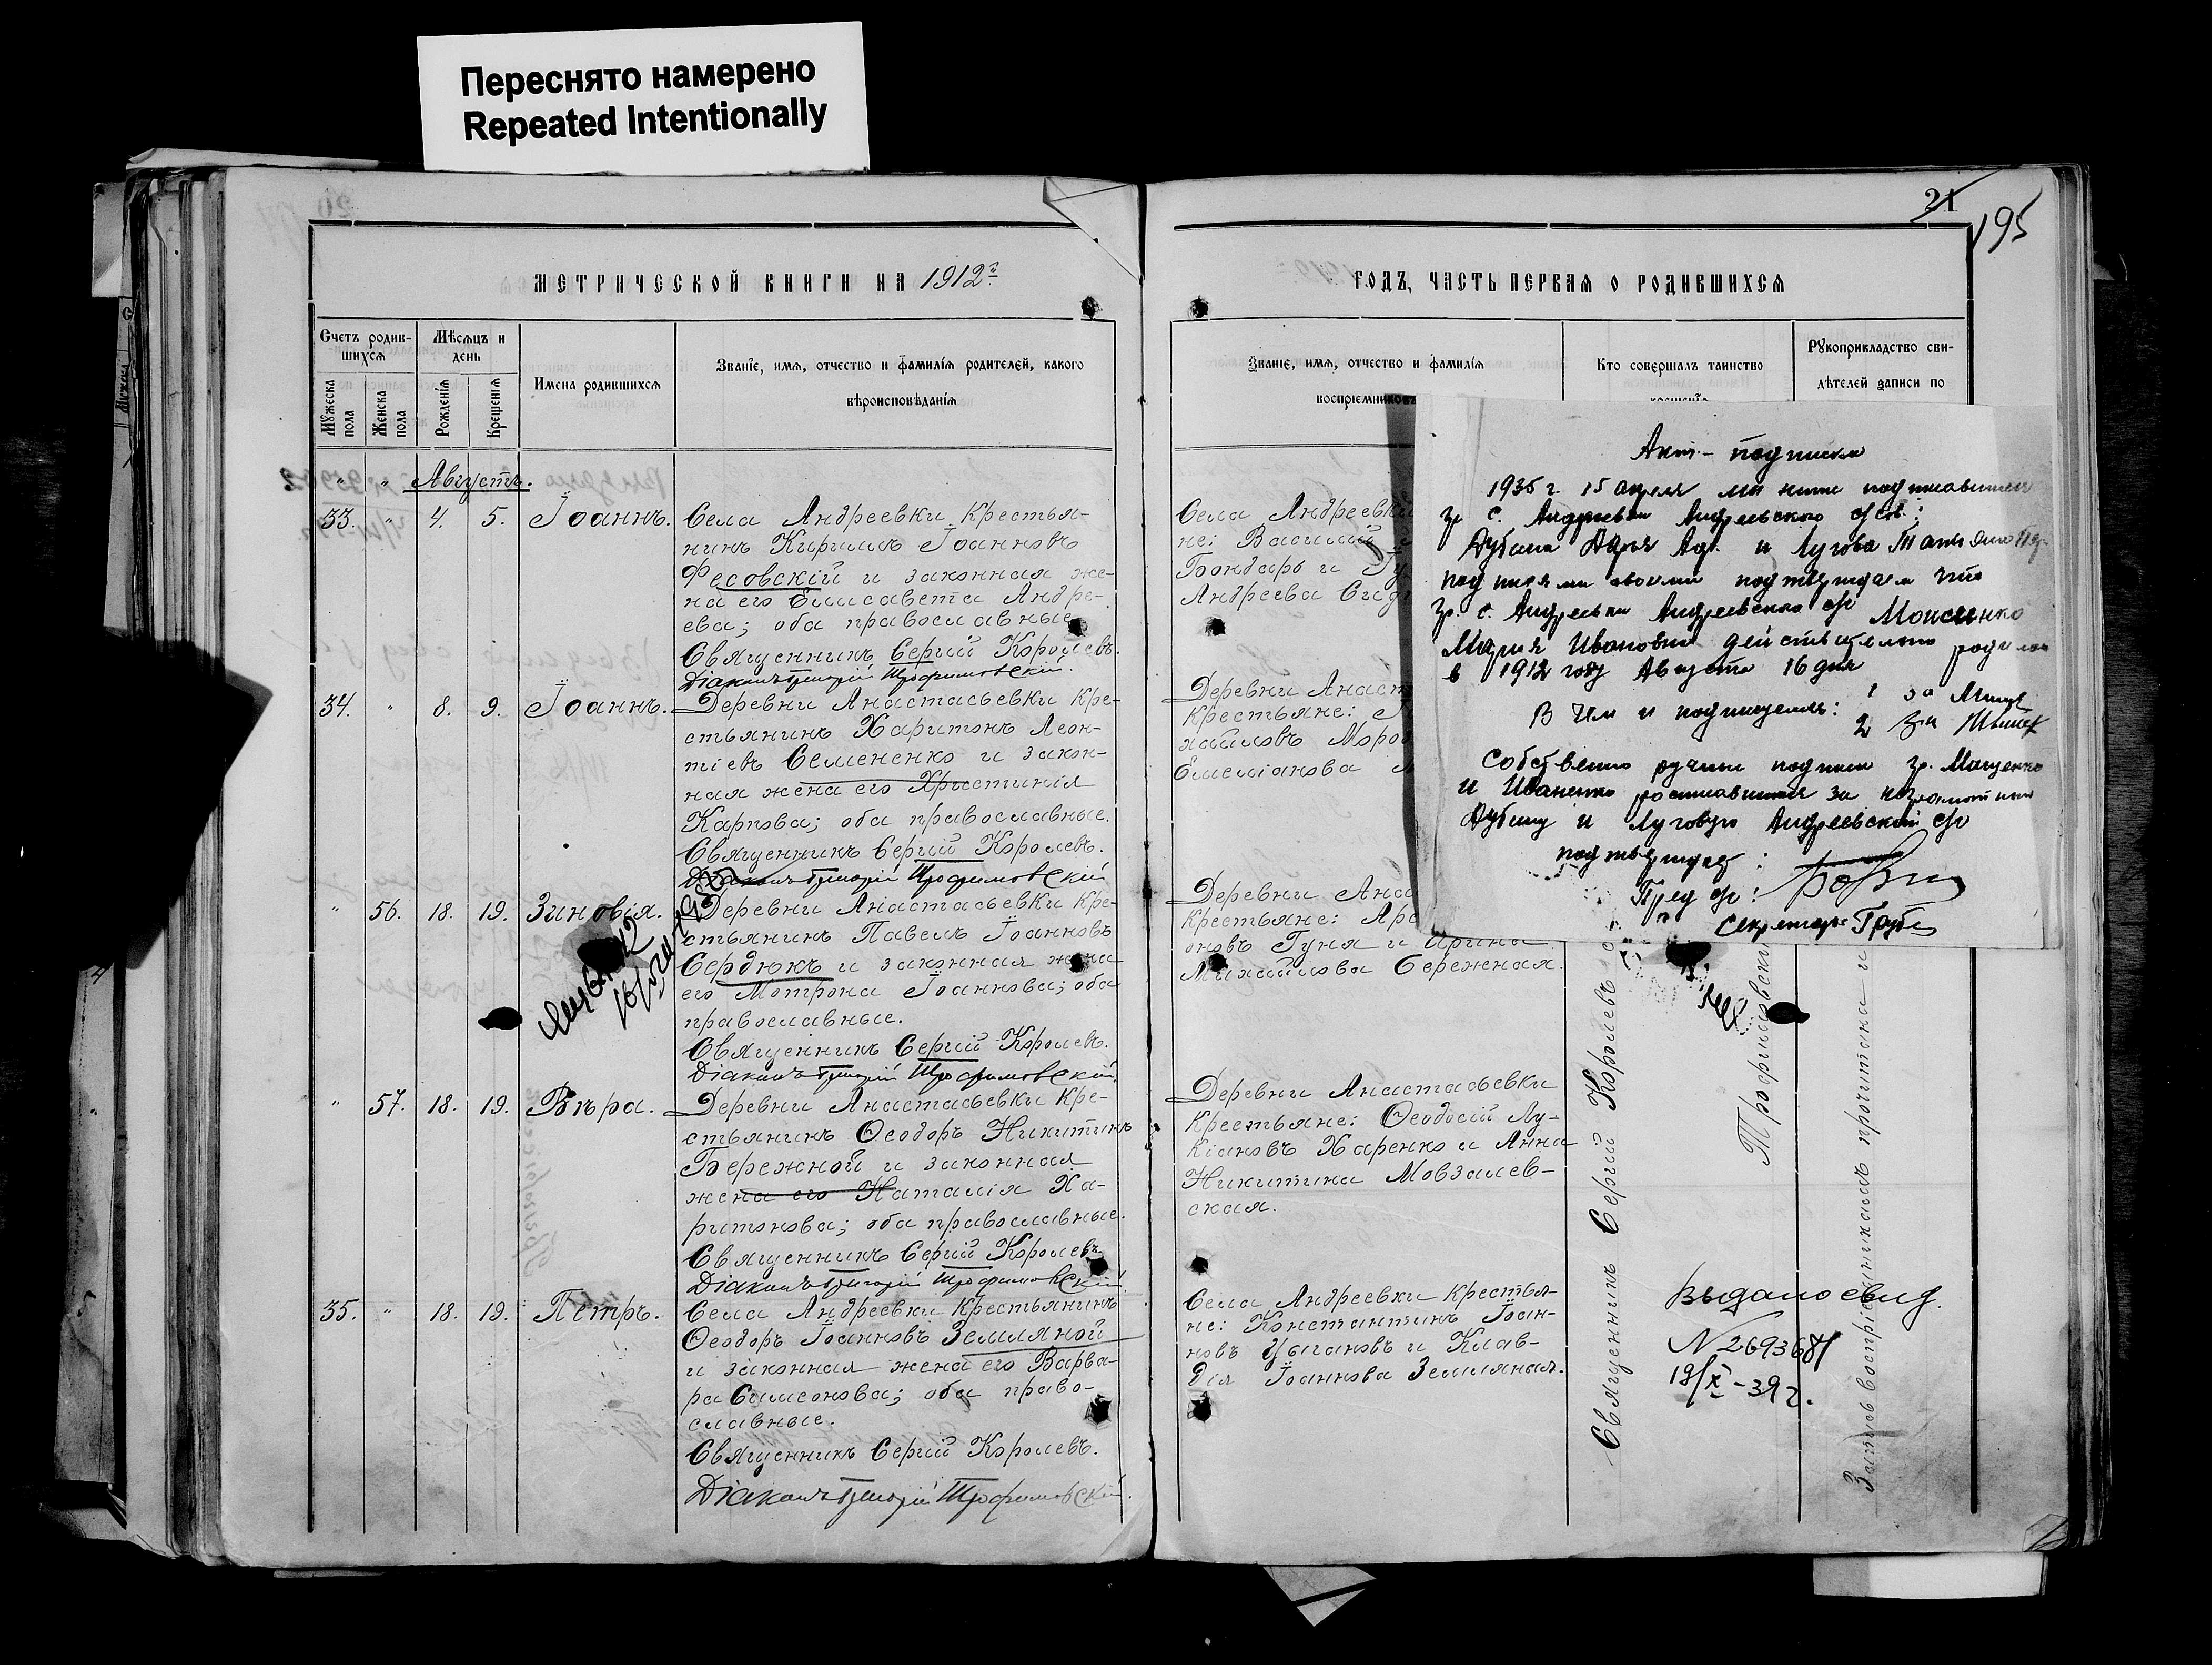 Переснято намерено
Repeated Intentionally
МЕТРИЧЕСКОЙ КНИГИ НА 1912 г.
Счетъ родив-
шихся
Мѣсяцъ и
день
Мужеска
пола
Женска
пола
Рожденія
Крещенія
Имена родившихся
Званіе, имя, отчество и фамилія родителей, какого
вѣроисповѣданія
" " Августъ.
33. " 4. 5. Іоаннъ. Села Андреевки крестья-
нинъ Кириллъ Іоанновъ
Фесовскій и законная же-
на его Елисавета Андре-
ева; оба православные.
Священникъ Сергій Королевъ.
Діаконъ Григорій Трофимовскій.
34. " 8. 9. Іоаннъ. Деревни Анастасьевки кре-
стьянинъ Харитонъ Леон-
тіевъ Семененко и закон-
ная жена его Христинія
Карпова; оба православные.
Священникъ Сергій Королевъ.
Діаконъ Григорій Трофимовскій
" 56. 18. 19. Зиновія. Деревни Анастасьевки кре-
стьянинъ Павелъ Іоанновъ
Сердюкъ и законная жена
его Мотрона Іоаннова; оба
православные.
Священникъ Сергій Королевъ.
Діаконъ Григорій Трофимовскій.
" 57. 18. 19. Вѣра. Деревни Анастасьевки кре-
стьянинъ Ѳеодоръ Никитинъ
Бережной и законная
жена его Наталія Ха-
ритонова; оба православные.
Священникъ Сергій Королевъ.
Діаконъ Григорій Трофимовскій
35. " 18. 19. Петръ. Села Андреевки крестьянинъ
Ѳеодоръ Іоанновъ Земляной
и законная жена его Варва-
ра Симеонова; оба право-
славные.
Священникъ Сергій Королевъ.
Діаконъ Григорій Трофимовскій.
21
195
ГОДЪ, ЧАСТЬ ПЕРВАЯ О РОДИВШИХСЯ
Званіе, имя, отчество и фамилія
воспріемниковъ
Кто совершалъ таинство
крещенія
Рукоприкладство сви-
дѣтелей записи по
Села Андреевки
не: Василій
Бондарь и
Андреева
Деревни Анаст
крестьяне:
хайловъ Моро
Емеліанова
Деревни Ана
крестьяне:
оновъ Гуня и Ирина
Михайлова Бережная.
Деревни Анастасьевки
крестьяне: Ѳеодосій Лу-
кіановъ Харенко и Анна
Никитина Мовзалев-
ская.
Села Андреевки крестья-
не: Константинъ Іоан-
новъ Цыгановъ и Клав-
дія Іоаннова Земляная.
Священникъ Сергій Королевъ
Трофимовскій
воспріемникамъ прочитана и
Выдано свид.
N 269368
19/X-39 г.
Акт - подписка
1935 г. 15 апреля мы ниже подписавшиеся
гр. с. Андреевки Андреевского с/сов:
Дубина Дарья и Лугова
подписями своими подтверждаем что
гр. с. Андреевки Андреевского с/с Моисеенко
Мария Ивановна действительно родилась
в 1912 году Августа 16 дня
В чем и подписуемся: 1 за
2 за
Собственно ручные подписи гр. Мащенко
и Иваненко росписавшихся за неграмотных
Дубину и Луговую Андреевский с/с
подтверждает:
Пред с/с:
секретарь